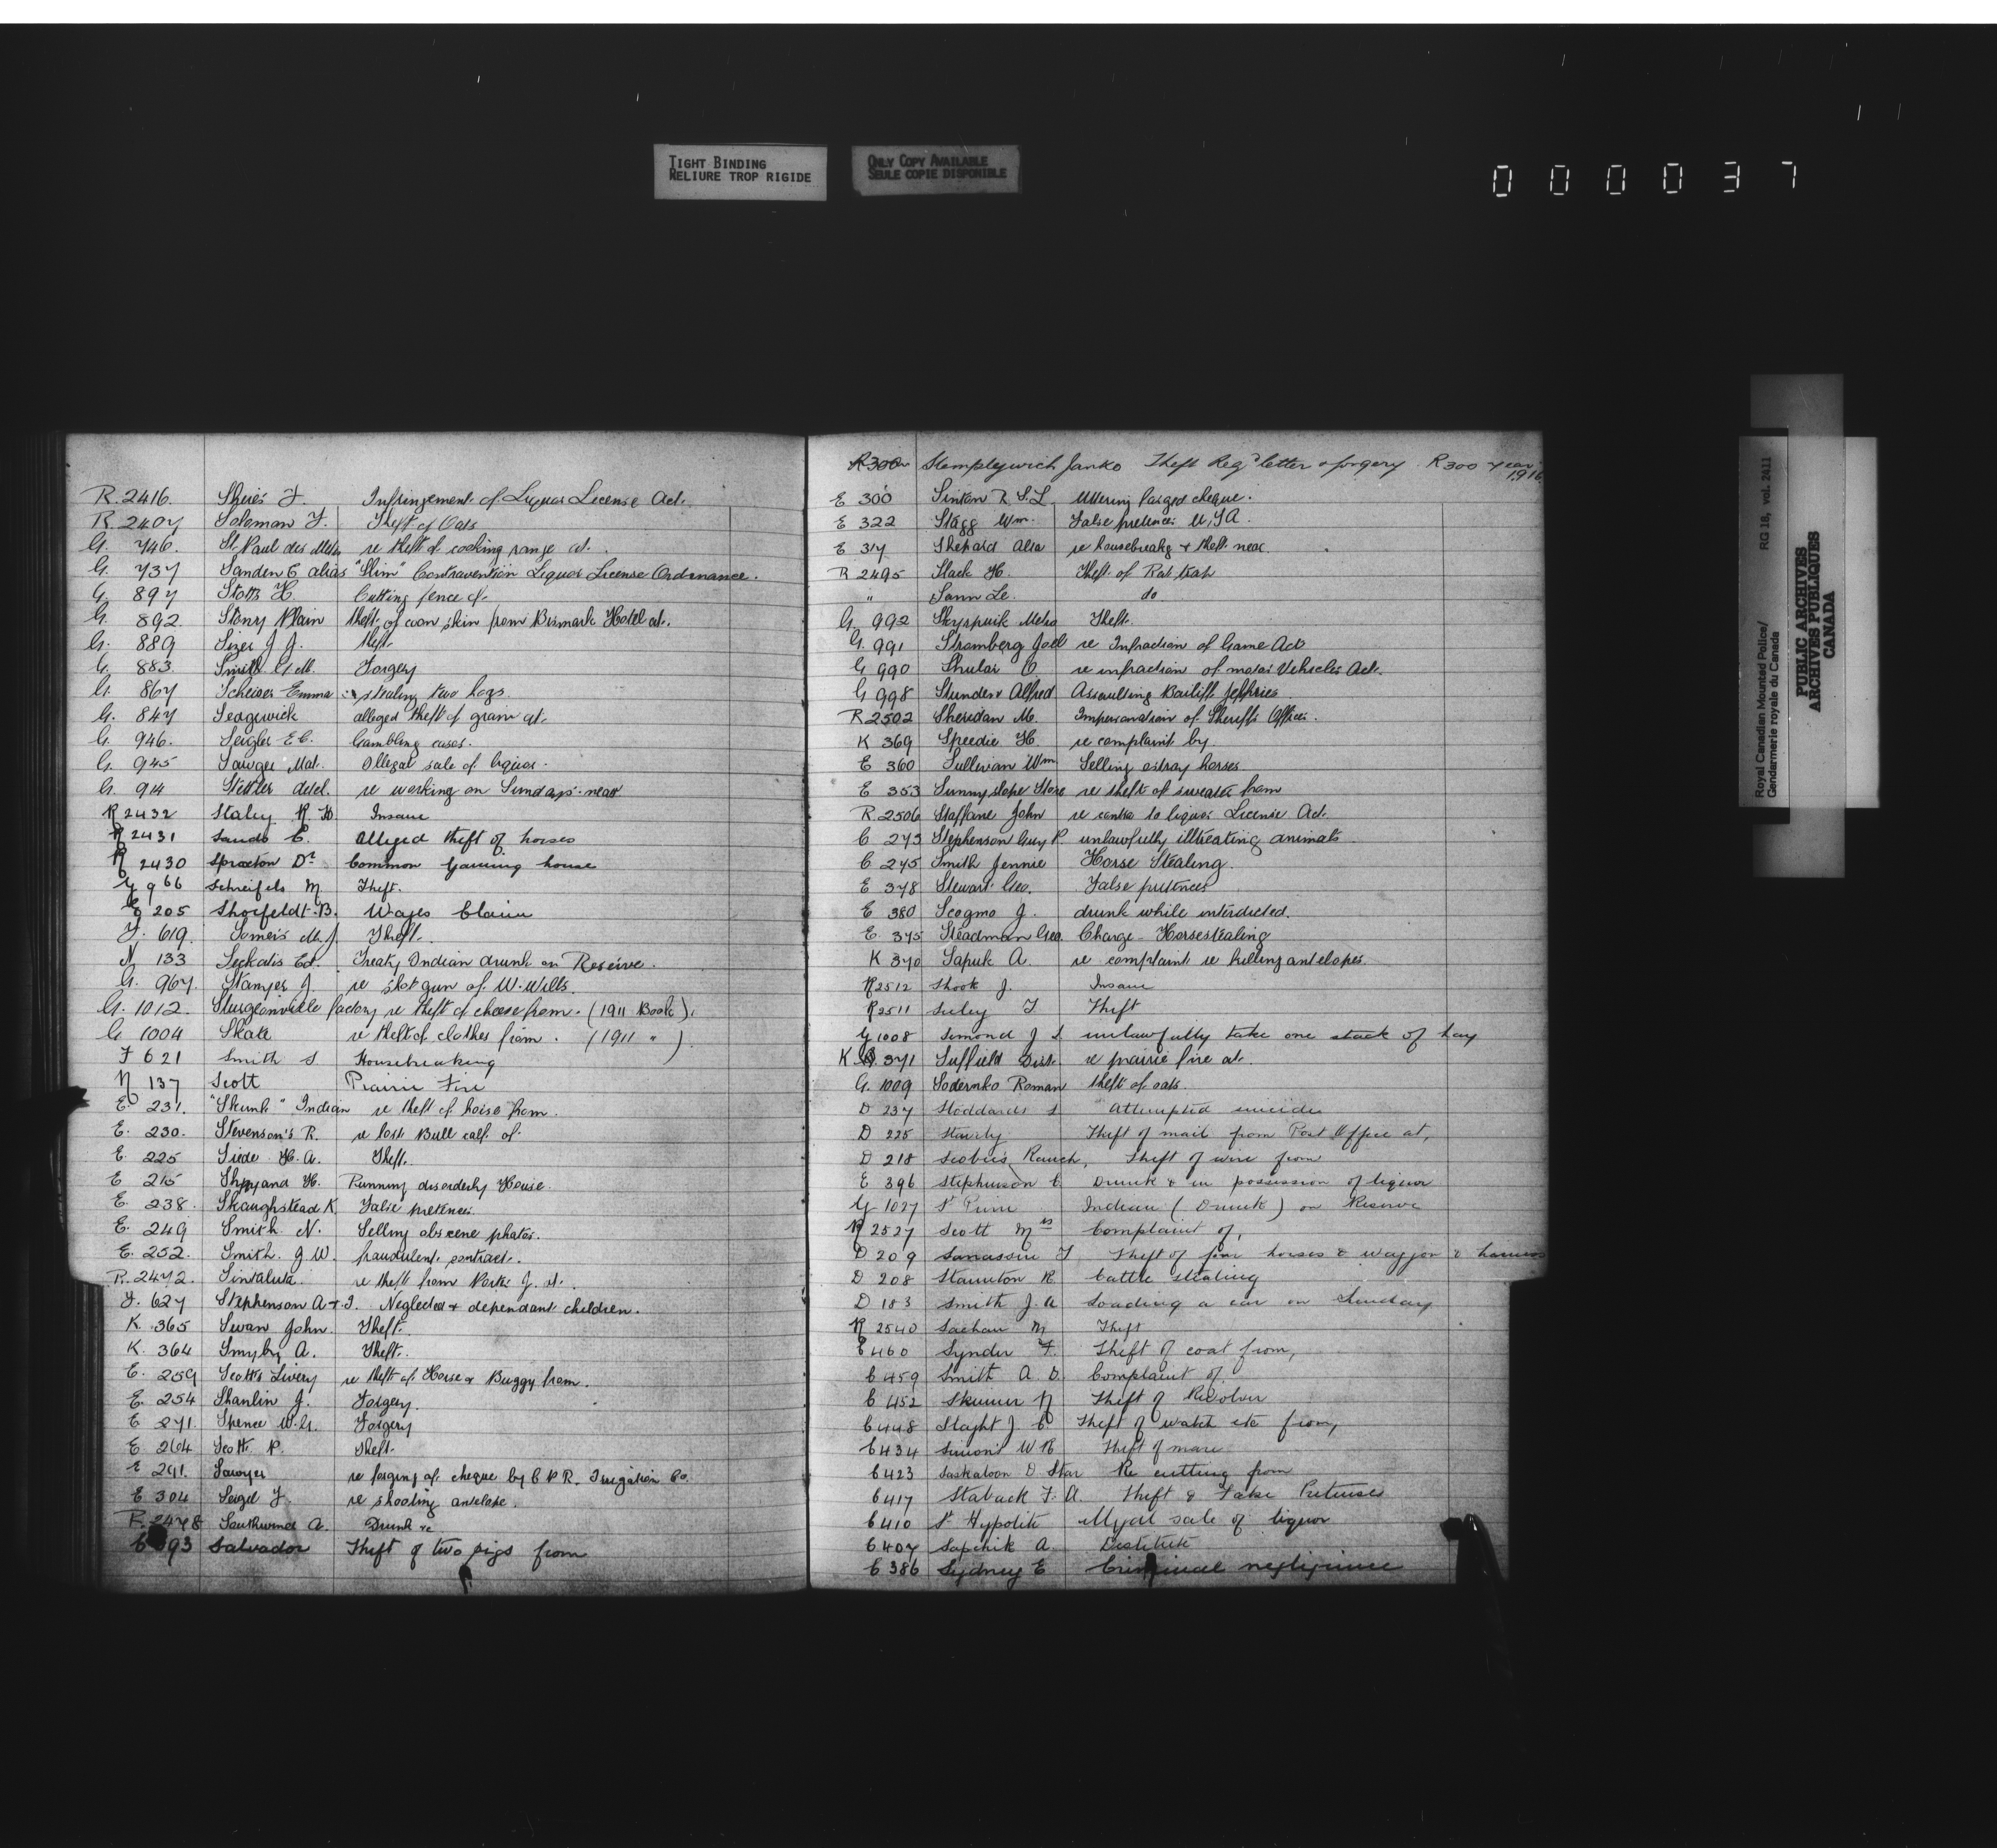 TIGHT BINDING
RELIURE TROP RIGIDE
ONLY COPY AVAILABLE
SEULE COPIE DISPONIBLE
000037
R. 2416. Shries F. Infringement of Liquor License Act.
R. 2407 Soloman F. Theft of Oats
G. 746. St. Paul des Metis re theft of cooking range at.
G. 737 Sanden E alias "Slim" Contravention Liquor License Ordinance.
G. 897 Stotts H. Cutting fence of.
G. 892. Stony Plain theft of coon skin from Bismark Hotel at.
G. 889 Sizer J J. theft.
G. 883. Smith G.M. Forgery
G. 867 Scheiser Emma stealing two hogs.
G. 847 Sedgewick alleged theft of grain at.
G. 946. Seigler E C. Gambling cases.
G. 945 Sawyer Mat. Illegal sale of liquor.
G. 914 Stettler detcl. re working on Sundays near
R 2432 Staley R. H. Insane
R 2431 Sands C. Alleged theft of horses
R 2430 Sproxton Dr. Common Gaming house
G 966 Schreifels M. Theft.
E 205 Shorfeldt B. Wages Claim
F. 619. Somers M. J. Theft.
N 133 Seekatis Ed. Treaty Indian drunk on Reserve.
G. 967. Stamyer J. re shot gun of W. Wells.
G. 1012. Sturgeonville factory re theft of cheese from. (1911 Book).
G 1004 Skate re theft of clothes from. (1911 " ).
F 621 Smith S Housebreaking
N 137 Scott Prairie Fire
E. 231. "Skunk" Indian re theft of horse from.
E. 230. Stevenson's R. re lost Bull calf of.
E. 225 Siede H. A. Theft.
E 215 Shryand H. Running disorderly House.
E. 238. Skaughstead K. False pretences.
E. 249 Smith N. Selling obscene photos.
E. 252. Smith. J W. fraudulent contract.
R. 2472. Sintaluta. re theft from Parks J. at.
F. 627 Stephenson A & J. Neglected & dependant children.
K. 365 Swan John. Theft.
K. 364 Smyly A. Theft.
E. 259 Scott's Livery re theft of Horse & Buggy from.
E. 254 Shanlin J. Forgery.
E 271. Spence W. G. Forgery
E 264 Scott R. Theft.
E 291. Sawyer re forging of cheque by C P R. Irrigation Co.
E 304 Seigel F. re shooting antelope.
R. 2478 Southwind A. Drunk &c
C 393 Salvador Theft of two pigs from
R300 Stemplywich Janko Theft Regd letter & forgery R300 year 1916
E 300 Sinton R S. L. Uttering forged cheque.
E 322 Stagg Wm. False pretences U.S.A.
E 317 Shepard Alta re housebreakg & theft near.
R 2495 Slack H. Theft of Rat trap
" Sann Le. do
G. 992 Skyrpuik Meho Theft.
G. 991 Stromberg Joel re Infraction of Game Act
G 990 Shular O. re infraction of motor Vehicles Act.
G 998 Stunden Alfred Assaulting Bailiff Jeffries
R 2502 Sheridan M. Impersonation of Sheriff's Officer.
K 369 Speedie H. re complaint by
E 360 Sullivan Wm Selling estray horses
E 353 Sunnyslope Store re theft of sweater from
R. 2506 Staffane John re contra to liquor License Act.
C 273 Stephenson Guy R. unlawfully illtreating animals
C 275 Smith Jennie Horse Stealing.
E 378 Stewart Geo. False pretences
E 380 Scogmo J. drunk while interdicted.
E. 375 Steadman Geo. Charge - Horsestealing
K 370 Sapuk A. re complaint re killing antelopes.
R 2512 Shook J. Insane
R 2511 Suley T Theft
G 1008 Simond J S. unlawfully take one stack of hay
K 371 Suffield Dist. re prairie fire at.
G. 1009 Sodernko Roman theft of oats.
D 237 Stoddards S Attempted suicide
D 225 Staurly Theft of mail from Post Office at,
D 218 Scobies Ranch, Theft of wire from
E 396 Stephenson C. Drunk & in possession of liquor
G 1027 St Pierre Indian (Drunk) on Reserve
R 2527 Scott Mrs Complaint of,
D 209 Sanassin F Theft of four horses & waggon & harness
D 208 Staunton R. Cattle stealing
D 183 Smith J. A Loading a car on Sunday
R 2540 Sachau M Theft
C 460 Synder F. Theft of coat from,
C 459 Smith A. D. Complaint of
C 452 Skinner N Theft of Revolver
C 448 Slaght J. C Theft of watch etc from,
C 434 Simons W R Theft of mare
C 423 Saskatoon D. Star Re cutting from
C 417 Staback F. A. Theft & False Pretenses
C 410 St Hypolite Illegal sale of liquor
C 407 Sapchik A Destitute
C 386 Sydney E Criminal negligence
Royal Canadian Mounted Police/ RG 18, vol. 2411
Gendarmerie royale du Canada
PUBLIC ARCHIVES
ARCHIVES PUBLIQUES
CANADA